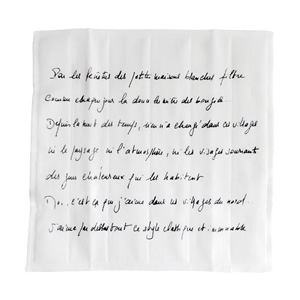 Par les fenêtres des petites maisons blanches filtre
comme chaque jour la douce lumière des bougies...
Depuis la nuit des temps, rien n'a changé dans ces villages
ni le paysage ni l'atmosphère, ni les visages souriants
des gens chaleureux qui les habitent
c'est ça que j'aime dans ces villages du nord...
J'aime par dessus tout ce style classique et